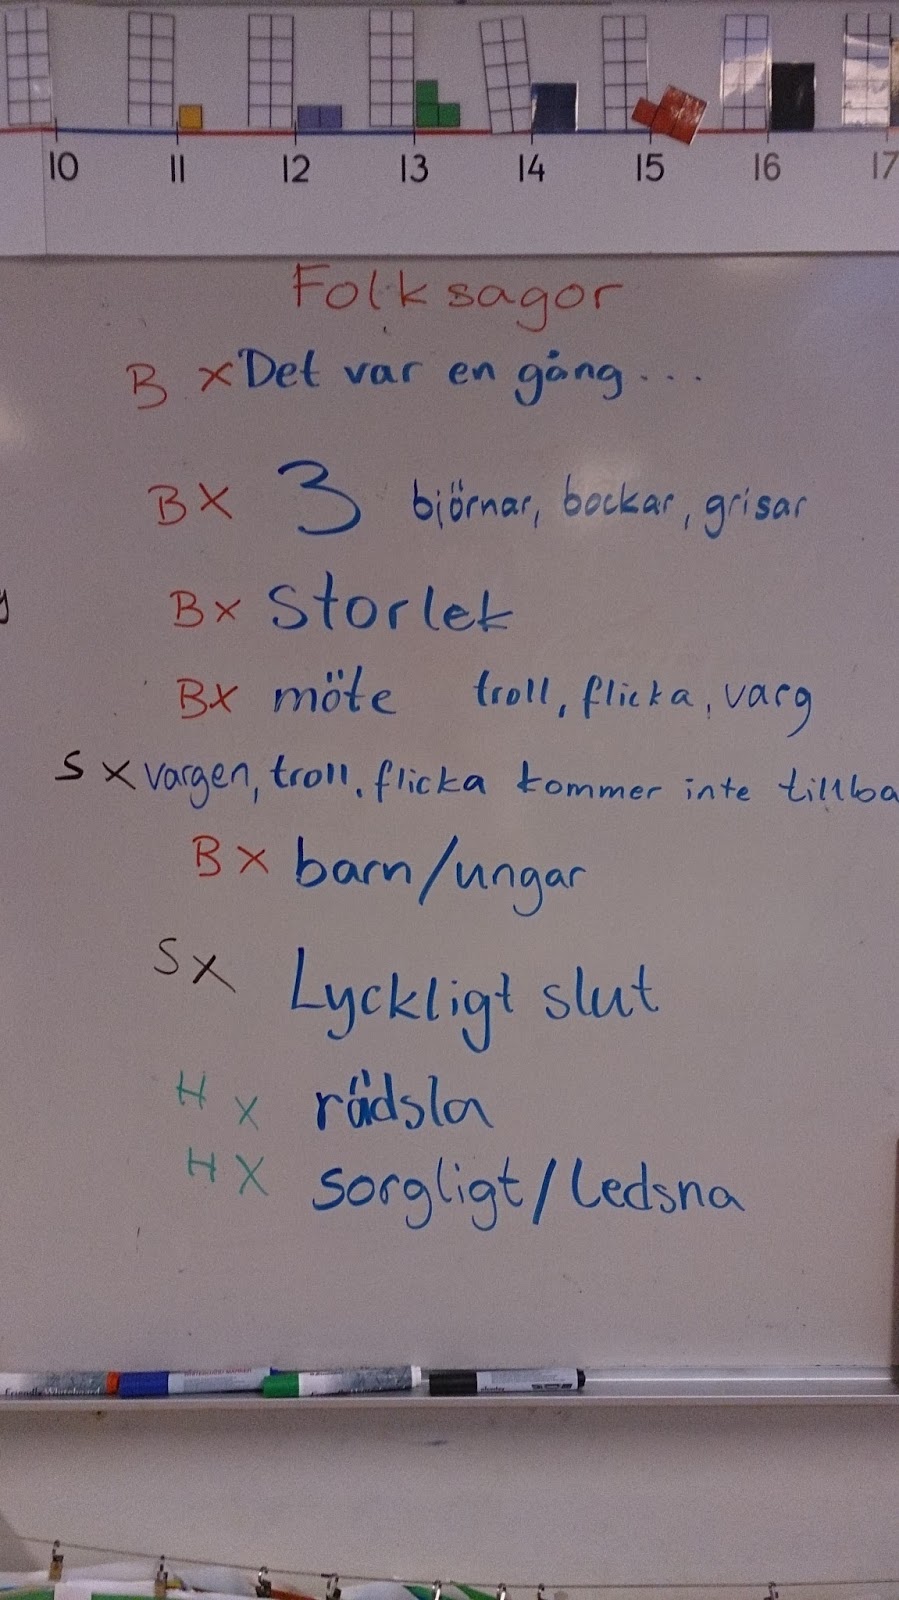 10 11 12 13 14 15 16 17
Folksagor
B x Det var en gång...
B x 3 björnar, bockar, grisar
B x storlek
B x möte troll, flicka, varg
S x vargen, troll, flicka kommer inte tillba
B x barn/ungar
S x Lyckligt slut
H x rädsla
H x sorgligt/ledsna